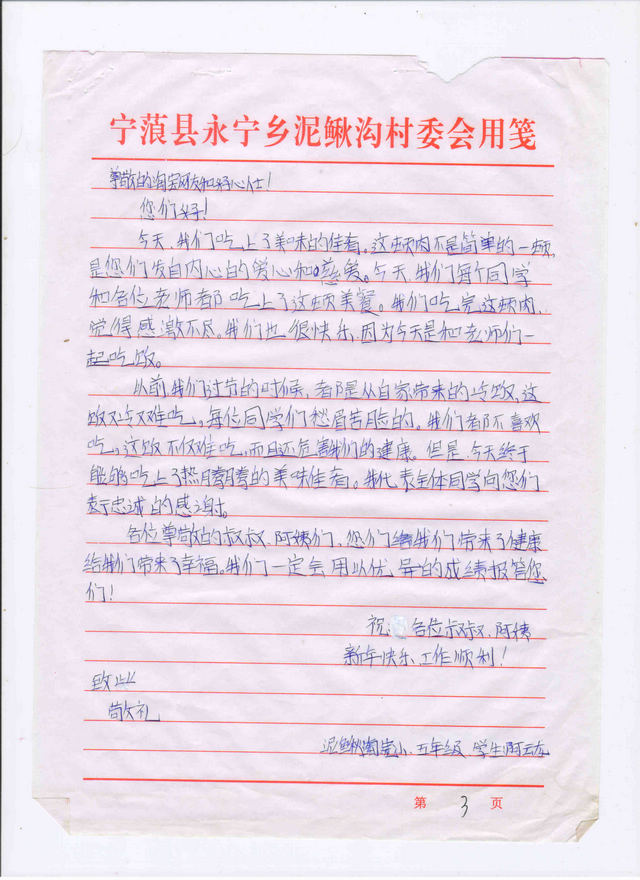 宁蒗县永宁乡泥鳅沟村委会用笺
尊敬的淘宝网友和好心人士!
您们好!
今天,我们吃上了美味的佳肴。这顿肉不是简单的一顿,
是您们发自内心的爱心和慈爱。今天,我们每个同学
和各位老师都吃上了这顿美餐。我们吃完这顿肉,
觉得感激不尽。我们也很快乐,因为今天是和老师们一
起吃饭。
以前,我们过节的时候,都是从自家带来的冷饭,这
饭又冷又难吃。每位同学们愁眉苦脸的。我们都不喜欢
吃。这饭不仅难吃,而且还危害我们的健康。但是,今天终于
能够吃上了热腾腾的美味佳肴。我代表全体同学向您们
表示忠诚的感谢。
各位尊敬的叔叔、阿姨们,您们给我们带来了健康
给我们带来了幸福。我们一定会用以优异的成绩报答您
们!
祝: 各位叔叔、阿姨
新年快乐、工作顺利!
致此
敬礼
泥鳅淘宝小、五年级、学生:阿云龙
第 3 页